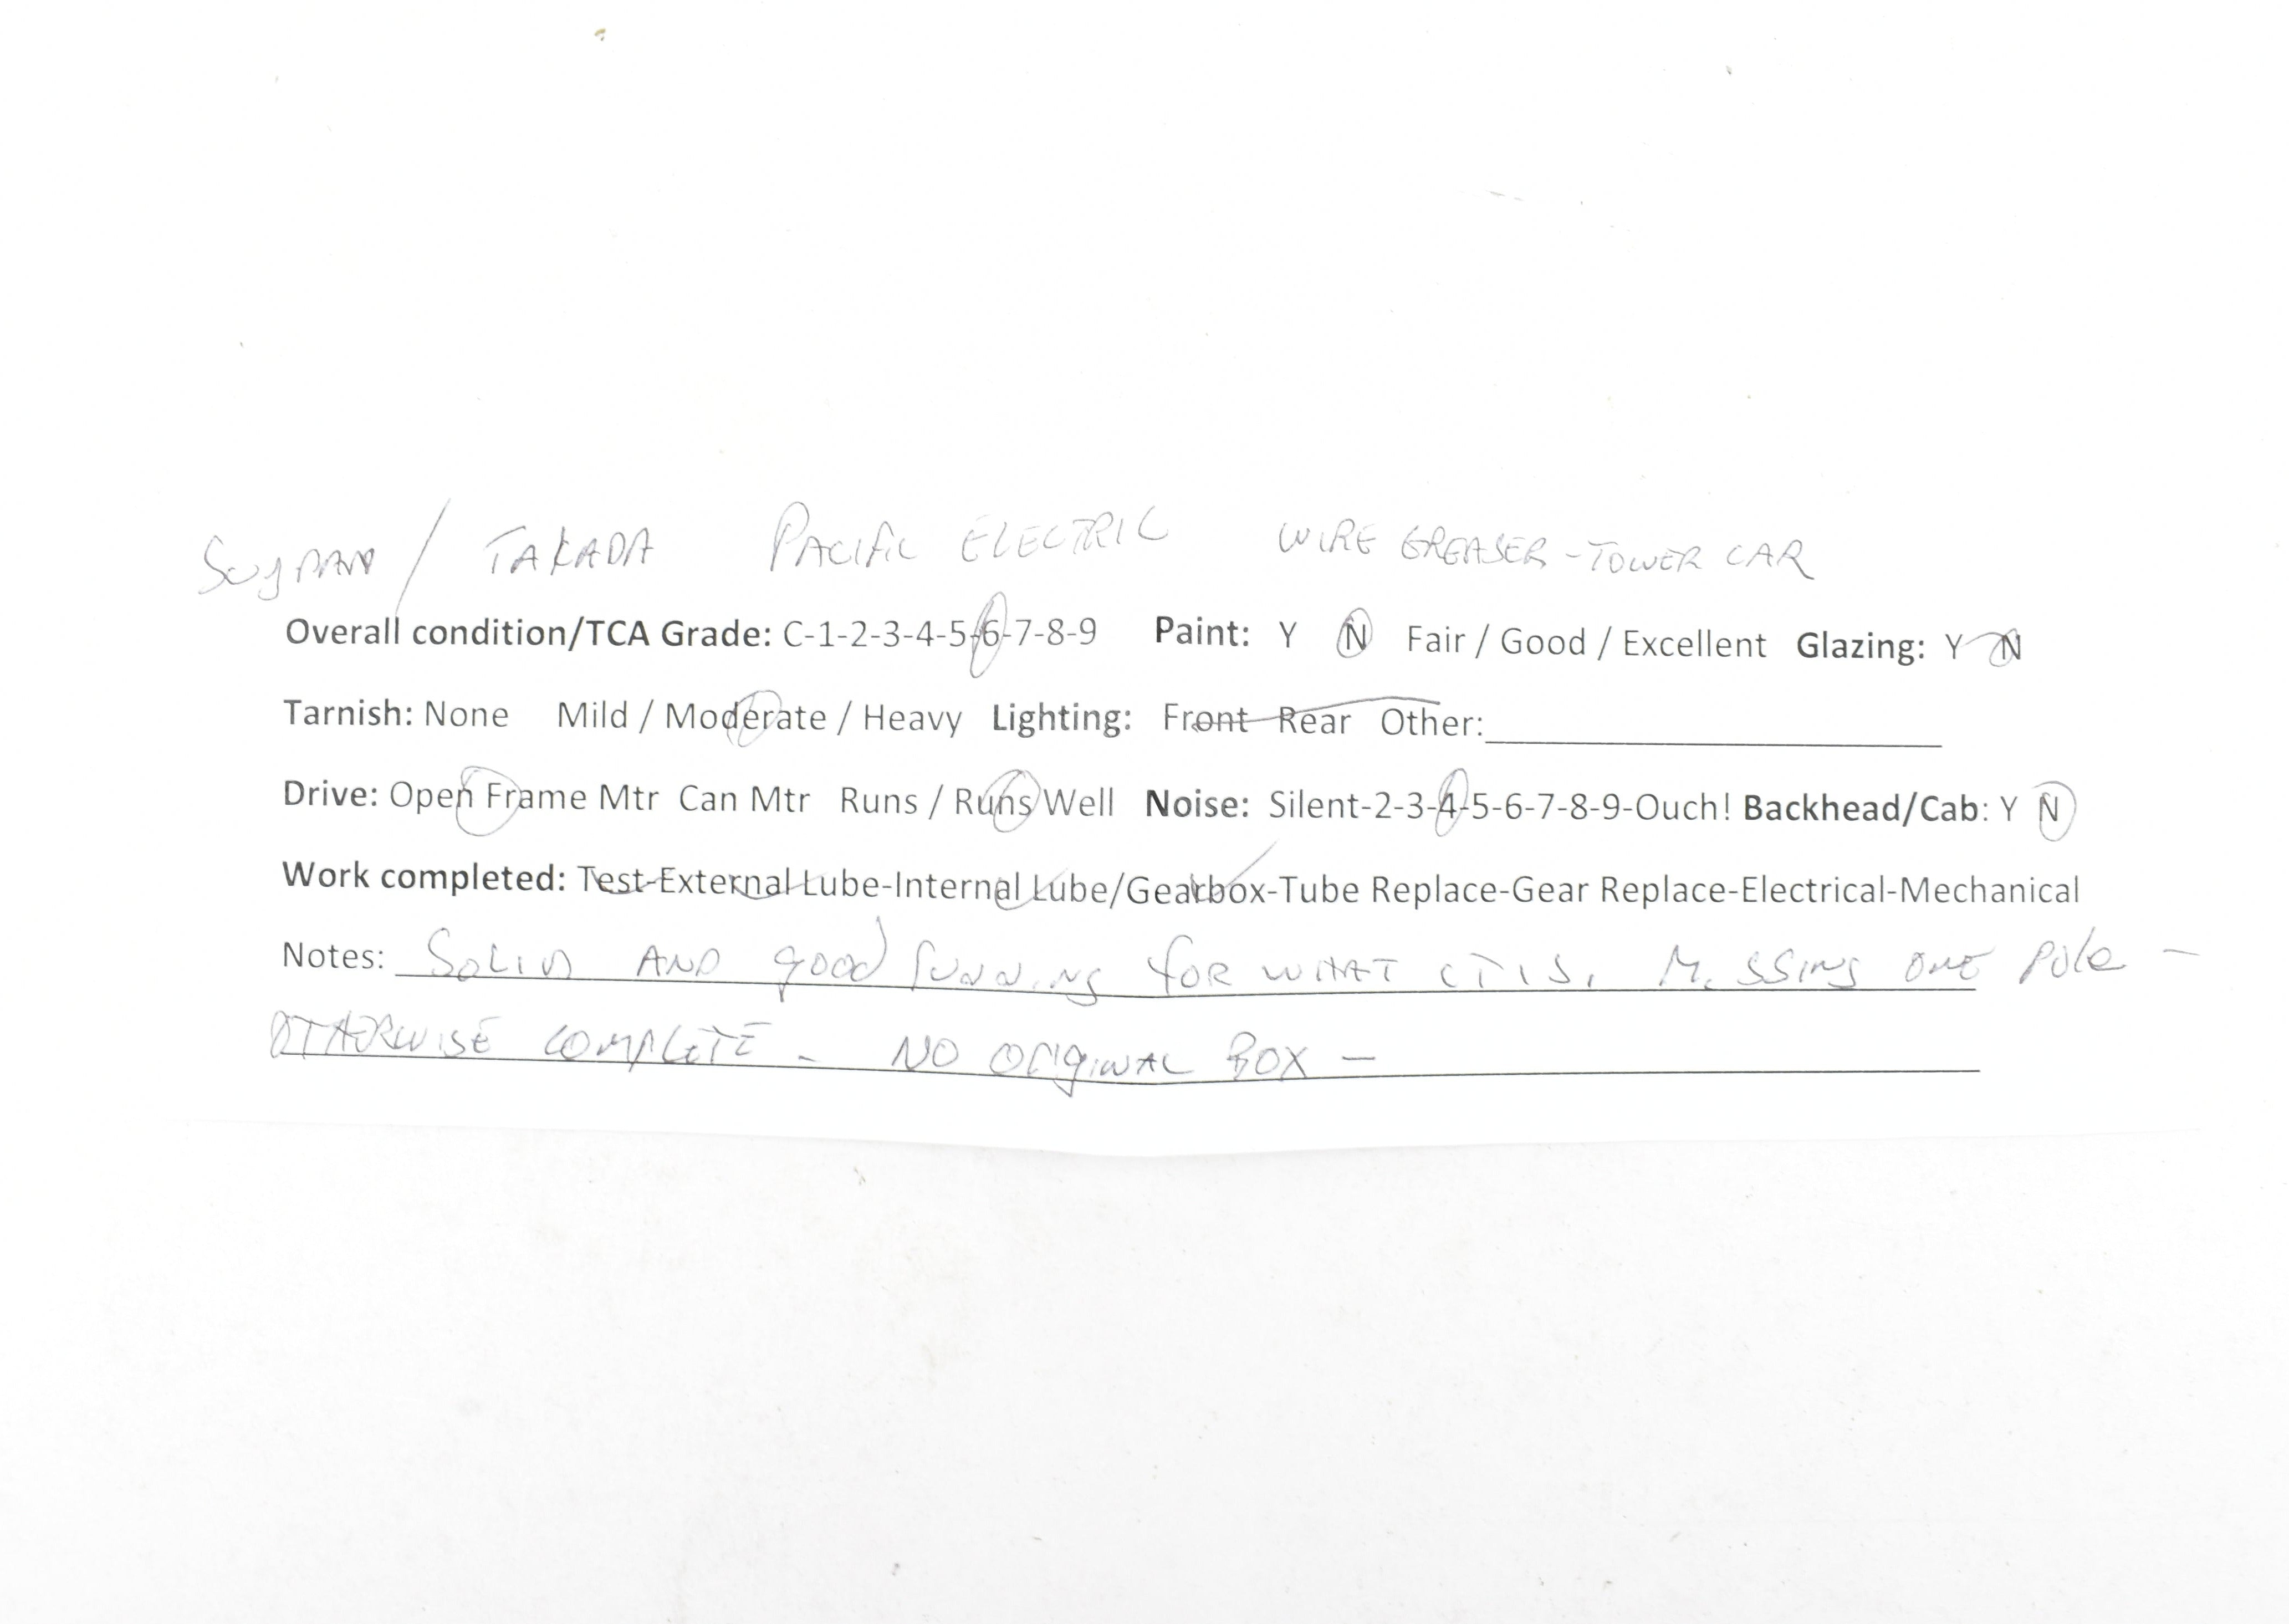 TAKADA PACIFIC ELECTRIC WIRE GREASER - TOWER CAR
Overall condition/TCA Grade: C-1-2-3-4-5-6-7-8-9 Paint: Y N Fair / Good / Excellent Glazing: Y N
Tarnish: None Mild / Moderate / Heavy Lighting: Front Rear Other:
Drive: Open Frame Mtr Can Mtr Runs / Runs Well Noise: Silent-2-3-4-5-6-7-8-9-Ouch! Backhead/Cab: Y N
Work completed: Test-External Lube-Internal Lube/Gearbox-Tube Replace-Gear Replace-Electrical-Mechanical
Notes: SOLID AND good running FOR WHAT IT IS. MISSING ONE POLE -
OTHERWISE COMPLETE - NO ORIGINAL BOX -